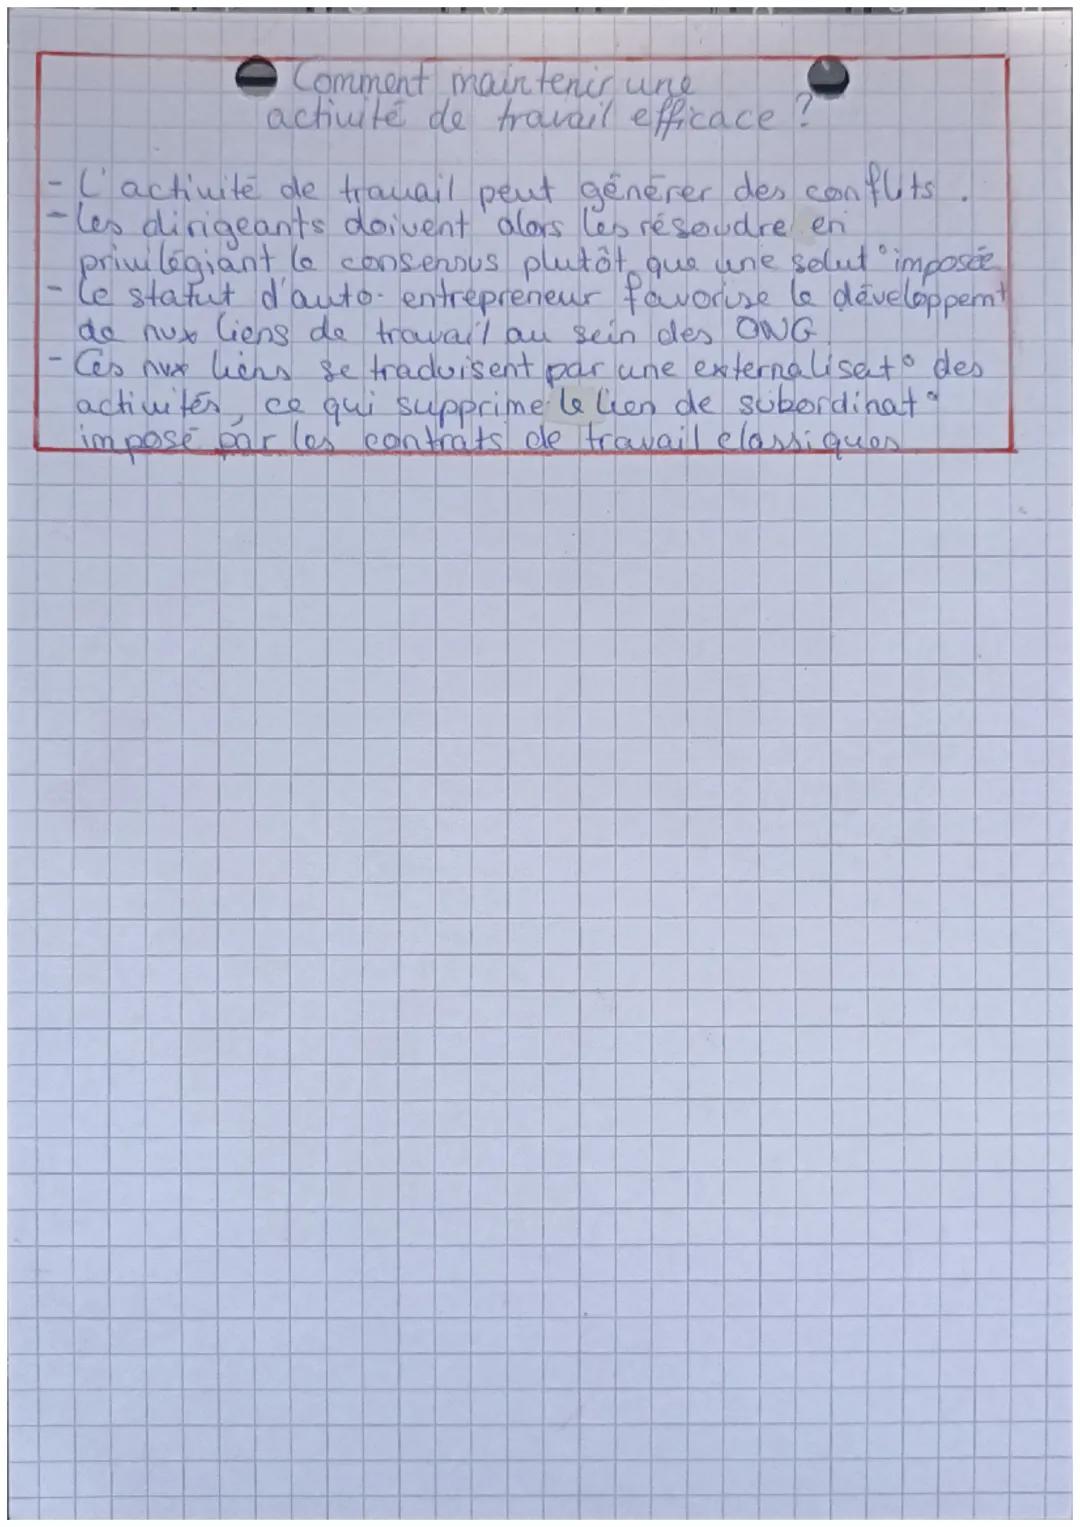 Comment maintenir une
activité de travail efficace ?
- L'activité de travail peut générer des conflits.
- Les dirigeants doivent alors les résoudre en
privilégiant le consensus plutôt que une solut° imposée
- Le statut d'auto-entrepreneur favorise le développemt
de nvx liens de travail au sein des ONG
- Ces nvx liens se traduisent par une externalisat° des
activités, ce qui supprime le lien de subordinat°
imposé par les contrats de travail classiques